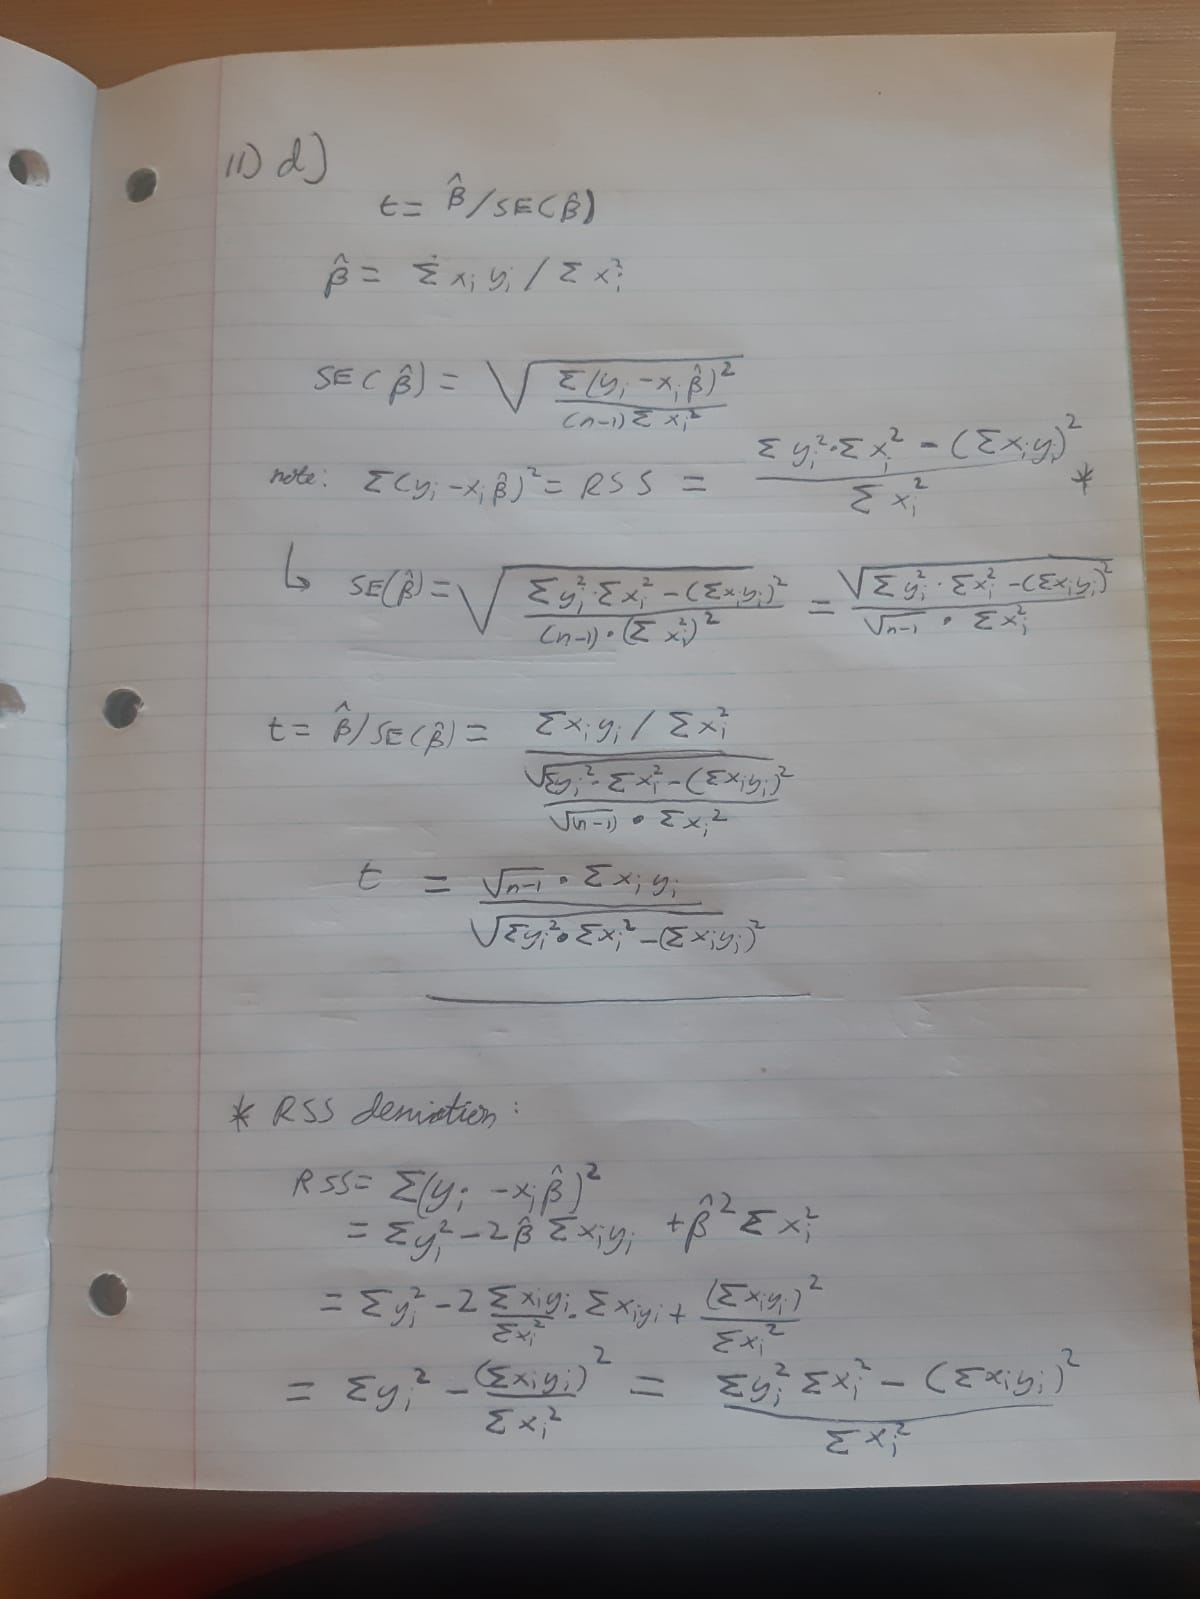 11) d)
t = β̂/SE(β̂)
β̂ = Σ xᵢ yᵢ / Σ xᵢ²
SE(β̂) = √( Σ(yᵢ - xᵢ β̂)² / ((n-1) Σ xᵢ²) )
note: Σ(yᵢ - xᵢ β̂)² = RSS = (Σ yᵢ² · Σ xᵢ² - (Σ xᵢ yᵢ)²) / Σ xᵢ² *
↳ SE(β̂) = √( (Σ yᵢ² · Σ xᵢ² - (Σ xᵢ yᵢ)²) / ((n-1) · (Σ xᵢ²)²) ) = √(Σ yᵢ² · Σ xᵢ² - (Σ xᵢ yᵢ)²) / (√(n-1) · Σ xᵢ²)
t = β̂/SE(β̂) = (Σ xᵢ yᵢ / Σ xᵢ²) / (√(Σ yᵢ² · Σ xᵢ² - (Σ xᵢ yᵢ)²) / (√(n-1) · Σ xᵢ²))
t = (√(n-1) · Σ xᵢ yᵢ) / √(Σ yᵢ² · Σ xᵢ² - (Σ xᵢ yᵢ)²)
* RSS derivation:
RSS = Σ(yᵢ - xᵢ β̂)²
= Σ yᵢ² - 2 β̂ Σ xᵢ yᵢ + β̂² Σ xᵢ²
= Σ yᵢ² - 2 (Σ xᵢ yᵢ / Σ xᵢ²) · Σ xᵢ yᵢ + (Σ xᵢ yᵢ)² / Σ xᵢ²
= Σ yᵢ² - (Σ xᵢ yᵢ)² / Σ xᵢ² = (Σ yᵢ² Σ xᵢ² - (Σ xᵢ yᵢ)²) / Σ xᵢ²